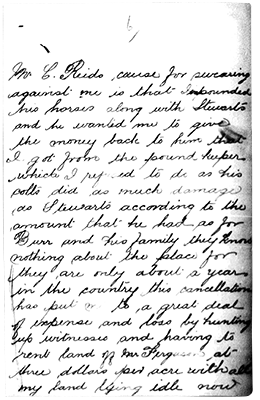 6
Mr C. Reids, cause for swearing
against me is that I impounded
his horses along with Stewarts
and he wanted me to give
the money back to him that
I got from the pound keeper
which I to do as his
colts did as much damage
as Stewarts according to the
amount that he had as for
Burr and his family they know
nothing about the place for
they are only about a year
in the country this cancellation
has put to a great deal
of expense and loss by hunting
up witnesses and having to
rent land of Mr Ferguson at
three dollars per acre with all
my land lying idle now